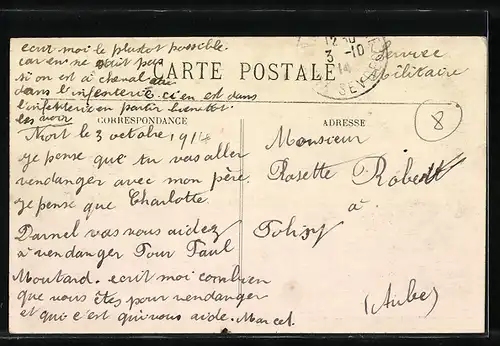 ecrit moi le plustot possible.
car en ne sait pas
si on est à cheval ou
dans l'infenterie. ci en est dans
l'infenterie en partir bientot.
les noir
CARTE POSTALE
12
3 -10
14
Service
Militaire
CORRESPONDANCE
ADRESSE
8
Niort le 3 octobre 1914
je pense que tu vas aller
vendanger avec mon père.
je pense que Charlotte.
Darnel vas vous aidez
à vendanger Pour Paul
Moutard. ecrit moi combien
que vous êtes pour vendanger
et qui c'est qui vous aide. Marcel.
Monsieur
Rosette Robert
à
Polisy
(Aube)